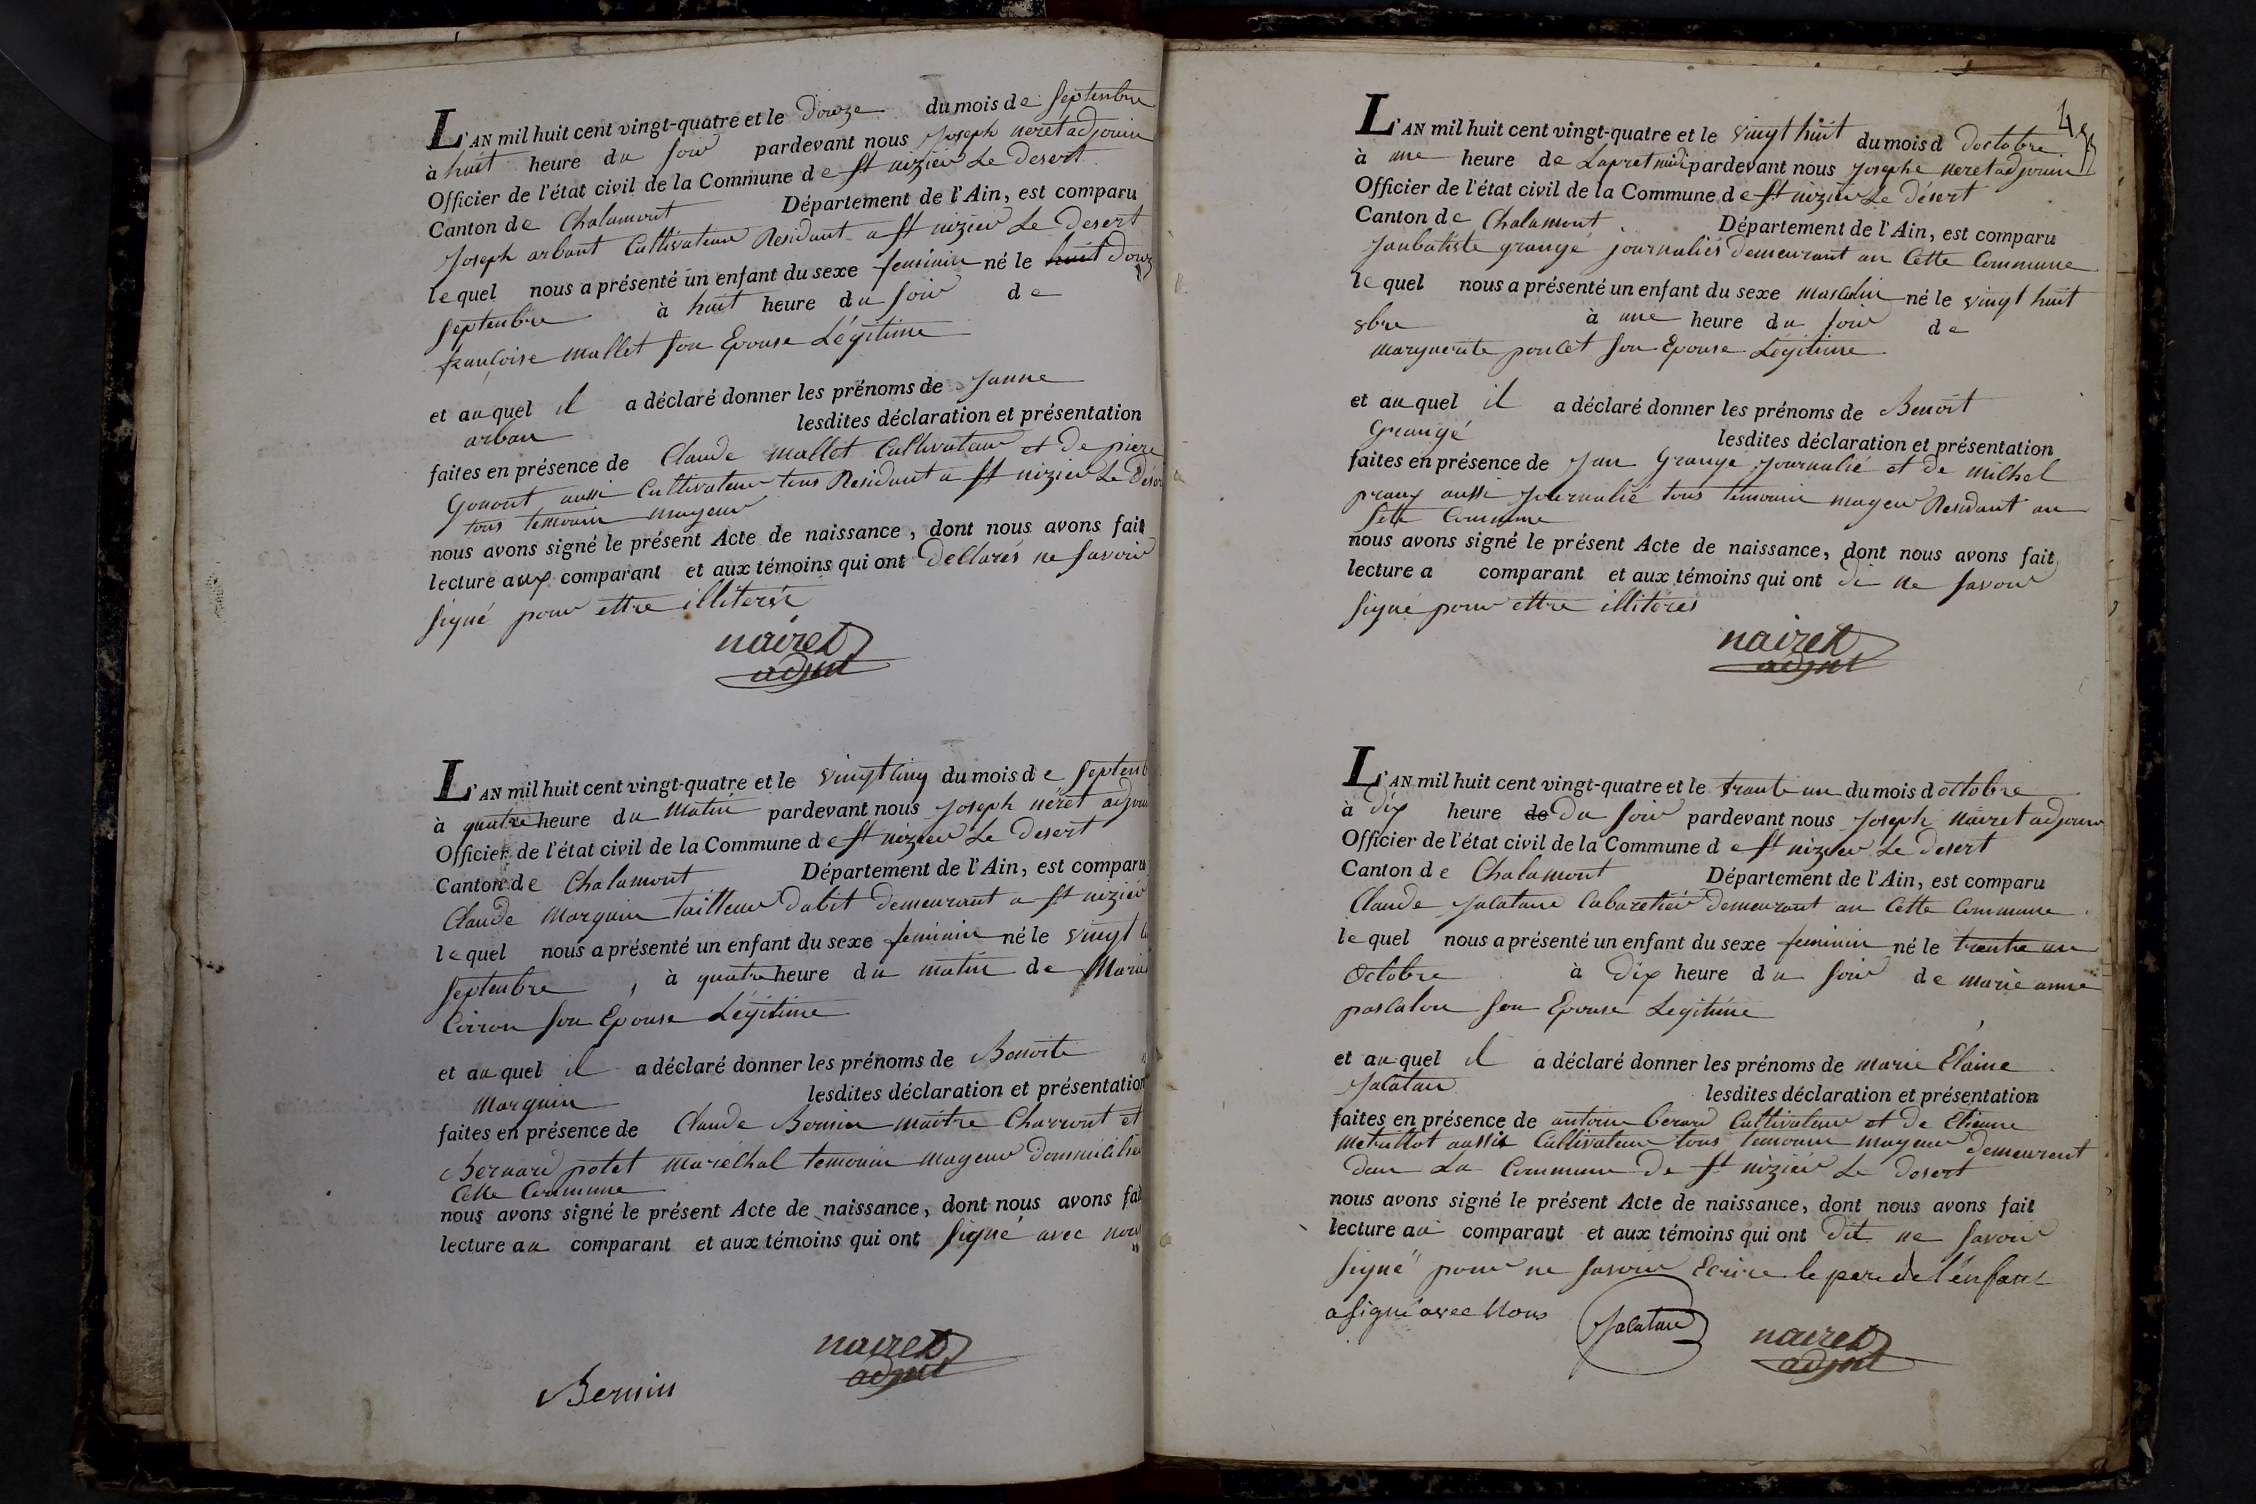 L'AN mil huit cent vingt-quatre et le douze du mois de septenbre
à huit heure du soir pardevant nous joseph neret adjouin
Officier de l'état civil de la Commune de st nizier Le desert
Canton de Chalamont Département de l'Ain, est comparu
joseph arbant Cultivateur Residant a st nizier Le desert
lequel nous a présenté un enfant du sexe feminin né le huit douz
septenbre à huit heure du soir de
françoise mallet son Epouse Légitime
et auquel il a déclaré donner les prénoms de janne
arban lesdites déclaration et présentation
faites en présence de Claude mallet Cultivateur et de piere
Gonont aussi Cultivateur tous Residant a st nizier Le Déser
tous temouin mageur
nous avons signé le présent Acte de naissance, dont nous avons fait
lecture aux comparant et aux témoins qui ont declarés ne savoir
signé pour ettre illiterés
nairet
adjoint
L'AN mil huit cent vingt-quatre et le vingt cinq du mois de septenb
à quatre heure du matin pardevant nous joseph néret adjouin
Officier de l'état civil de la Commune de st nizier Le desert
Canton de Chalamont Département de l'Ain, est comparu
Claude morguin tailleur dabit demeurant a st nizier
lequel nous a présenté un enfant du sexe feminin né le vingt
septenbre, à quatre heure du matin de Marie
Coiron son Epouse Légitime
et auquel il a déclaré donner les prénoms de Benoite
morguin lesdites déclaration et présentation
faites en présence de Claude Bernin maitre Charront et
Bernard potet maréchal temouin mageur dommicilié
Cette Commune
nous avons signé le présent Acte de naissance, dont nous avons fait
lecture au comparant et aux témoins qui ont signé avec nous
nairet
adjoint
Bernin
L'AN mil huit cent vingt-quatre et le vingt huit du mois d doctobre
à une heure de Lapret midi pardevant nous josephe neret adjouin
Officier de l'état civil de la Commune de st nizier Le désert
Canton de Chalamont Département de l'Ain, est comparu
janbatiste grangé journaliér demeurant an Cette Commune
lequel nous a présenté un enfant du sexe masculin né le vingt huit
8bre à une heure du soir de
marguerite poncet son Epouse Légitime
et auquel il a déclaré donner les prénoms de Benoit
Grangé lesdites déclaration et présentation
faites en présence de jan Grange journalié et de michel
praux aussi journalié tous temouin mageur Residant an
sete Commune
nous avons signé le présent Acte de naissance, dont nous avons fait
lecture a comparant et aux témoins qui ont di ne savoir
signé pour ettre illitérés
nairet
adjoint
L'AN mil huit cent vingt-quatre et le trante un du mois d octobre
à dix heure de du soir pardevant nous joseph nairet adjouin
Officier de l'état civil de la Commune de st nizier Le desert
Canton de Chalamont Département de l'Ain, est comparu
Claude jalatane Cabaretiér demeurant an Cette Commune
lequel nous a présenté un enfant du sexe feminin né le trante un
Octobre à dix heure du soir de marie anne
pascalon son Epouse Legitime
et auquel il a déclaré donner les prénoms de marie Élaine
jalatan lesdites déclaration et présentation
faites en présence de antoine berard Cultivateur et de Etienne
metraillot aussi Cultivateur tous temouin mageur demeurent
dan La Commune de st niziér Le desert
nous avons signé le présent Acte de naissance, dont nous avons fait
lecture au comparant et aux témoins qui ont dit ne savoir
signé pour ne savoir Ecrire le pere de l'énfant
a signé avec Nous
jalatan
nairet
adjoint